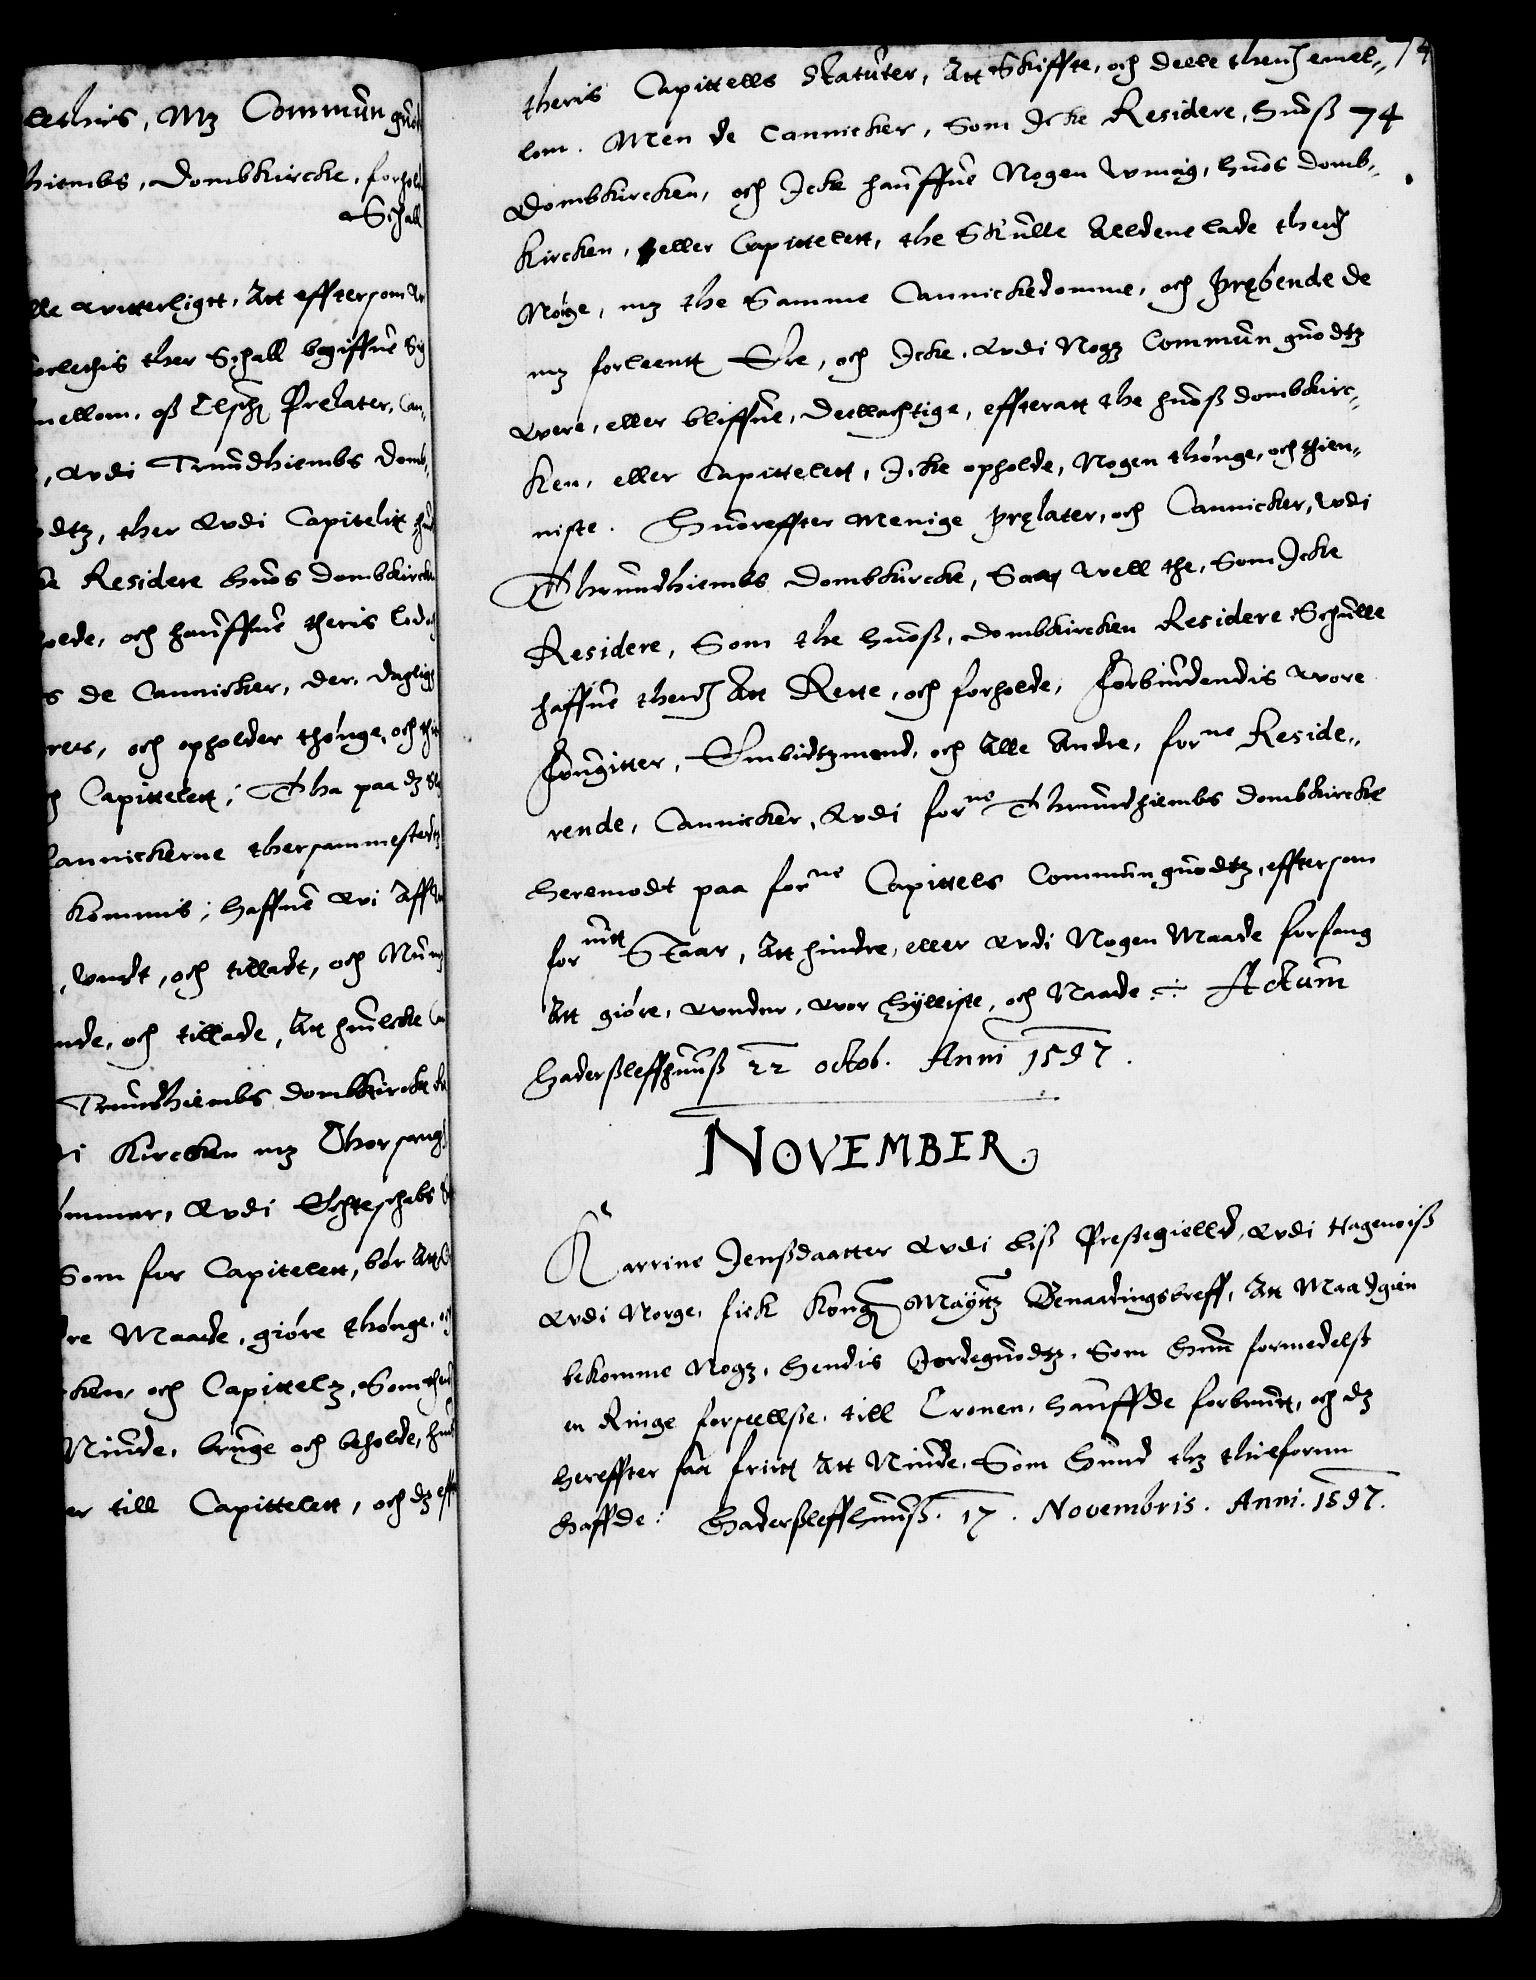 lethirs, Mz Commun guodtz
hiembs, Dombkircke, forhol
Schall
lle witterligtt, Att efftersom
orlechis ther Schall begiffue Sig
mellom, oß Elsche Prelater, Can,,
, wdi Trundhiembs Domb,,
odtz, ther wdi Capitelitt
ke Residere huos Dombkircke
olde, och hauffue theris
s de Cannicker, der, Dagligg
rer, och opholder thönge, och thie
h Capittelett; Tha paa dz
Cannickerne thersammesteds
kommis; haffue wi Aff
, wndt, och tilladt, och Nu
nde, och tillade, Att huilcke
Trundhiembs Dombkircke
di Kircken mz Chorsang
ommer, wdi Echteschabs
Som for Capitelett, bör Att
re Maade, giöre thönge, och
ken, och Capittelz, Som the
Niude, bruge och beholde,
er till Capittelett, och dz eff
theris Capittells Statuter, Att Skiffte, och deele thend emel,,
74
lom. Men de Cannicker, Som Icke Residere, huoß
74
Dombkircken, och Icke hauffue Nogen wmag, huos Domb,,
kircken, eller Capittelett, the Skulle Alldene lade thend
Nöige, mz the Samme Cannickedomme, och Præbende de
mz forleentt Ere, och Icke, wdi Nogz Commun guodtz
were, eller bliffue, deellachtige, effteratt the huoß Dombkirc,,
ken, eller Capittelett, Icke opholde, Nogen thönge, och thien,,
niste. Huoreffter Menige Prælater, och Cannicker, wdi
Thrundhiembs Dombkircke, Saa well the, Som Icke
Residere, Som the huoß, Dombkircken Residere, Schulle
haffue thend Att Rette, och forholde, Forbiudendis wore
Fougitter, Embidtzmend, och Alle Andre, forne Reside,,
rende, Cannicker, wdi forne Thrundhiembs Dombkircke
heremodt paa forne Capittels Commun guodtz, efftersom
foruitt Staar, Att hindre, eller wdi Nogen Maade forfang
Att giöre, wnder, wor hylliste, och Naade ÷ Actum
Haderßleffhuuß 22 octob. Anni 1597.
NOVEMBER.
Karrine Jenßdaatter wdi Liß Prestegielld, wdi Hagenoiß
wdi Norge, fick Kong Maytz Benaadingsbreff, Att Maa Igien
bekomme Nogz, hendis Jordeguodtz, Som hun formedelß
en Ringe forseellße, till Cronen, hauffde forbrutt, och dz
hereffter saa friitt Att Niude, Som hund thz thilfornn
haffde: Haderßleffhuuß. 17. Novembris. Anni. 1597.